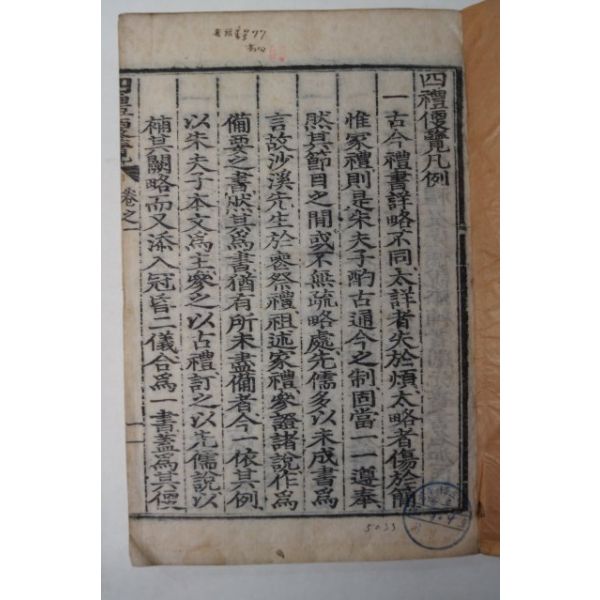 四禮便覽凡例
一古今禮書詳略不同太詳者失於煩太略者傷於簡
惟家禮則是朱夫子酌古通今之制固當一一遵奉
然其節目之間或不無疏略處先儒多以未成書爲
言故沙溪先生於喪祭禮祖述家禮參證諸說作爲
備要之書狀其爲書猶有所未盡備者今一依其例
以朱夫子本文爲主參之以古禮訂之以先儒說以
補其闕略而又添入冠昏二儀合爲一書蓋爲其便
四禮便覽 卷之一
5033